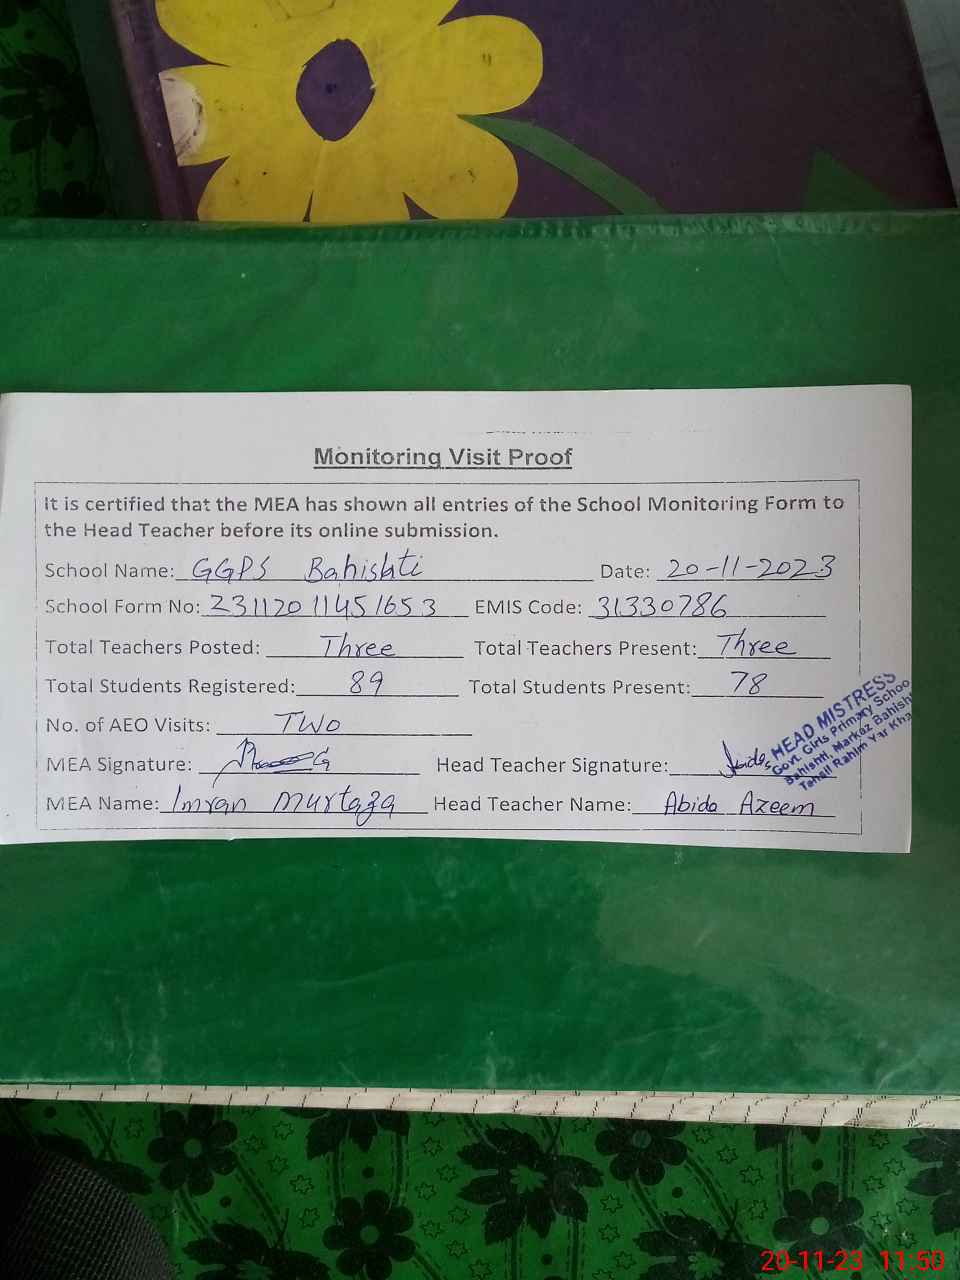 Monitoring Visit Proof
It is certified that the MEA has shown all entries of the School Monitoring Form to
the Head Teacher before its online submission.
School Name: GGPS Bahishti Date: 20-11-2023
School Form No: 231120 11451653 EMIS Code: 31330786
Total Teachers Posted: Three Total Teachers Present: Three
Total Students Registered: 89 Total Students Present: 78
No. of AEO Visits: TWO
MEA Signature: Head Teacher Signature: Abida
MEA Name: Imran Murtaza Head Teacher Name: Abida Azeem
HEAD MISTRESS
Govt. Girls Primary Schoo
Bahishti, Markaz Bahisht
Tehsil Rahim Yar Kha
20-11-23 11:50